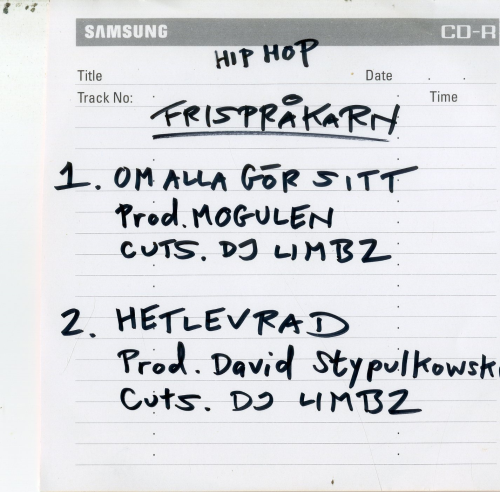 SAMSUNG CD-R
HIP HOP
Title Date
Track No: Time
FRISPRÅKARN
1. OM ALLA GÖR SITT
Prod. MOGULEN
CUTS. DJ LIMBZ
2. HETLEVRAD
Prod. David Stypulkowsk
Cuts. DJ LIMBZ